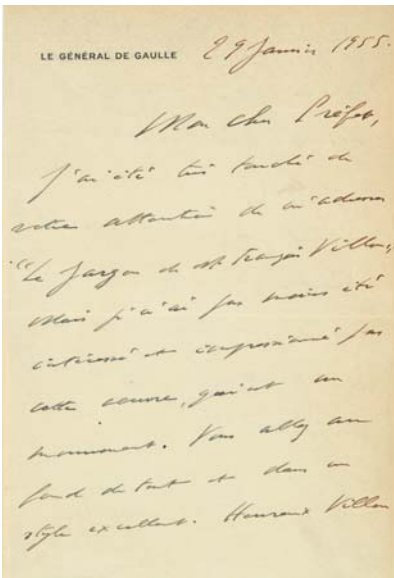 LE GÉNÉRAL DE GAULLE 29 Janvier 1955.
Mon cher Préfet,
J'ai été très touché de
votre attention de m'adresser
"Le Jargon de Mr François Villon".
Mais je n'ai pas moins été
intéressé et impressionné par
cette oeuvre, qui est un
monument. Vous allez au
fond de tout et dans un
style excellent. Heureux Villon